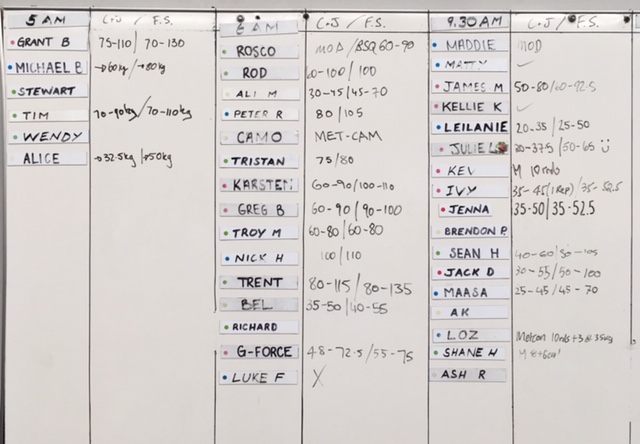 5 AM C+J / F.S.
GRANT B 75-110 / 70-130
MICHAEL B →60kg / →80kg
STEWART
TIM 70-90kg / 70-110kg
WENDY
ALICE →32.5kg / →50kg
6 AM C+J / F.S.
ROSCO MOD / BSQ 60-90
ROD 60-100 / 100
ALI M 30-45 / 45-70
PETER R 80 / 105
CAMO MET-CAM
TRISTAN 75 / 80
KARSTEN 60-90 / 100-110
GREG B 60-90 / 90-100
TROY M 60-80 / 60-80
NICK H 100 / 110
TRENT 80-115 / 80-135
BEL 35-50 / 40-55
RICHARD
G-FORCE 48-72.5 / 55-75
LUKE F X
9.30AM C+J / F.S.
MADDIE MOD
MATTY ✓
JAMES M 50-80 / 60-92.5
KELLIE K ✓
LEILANIE 20-35 / 25-50
JULIE L 30-37.5 / 50-65
KEV M 10 rnds
IVY 35-45 (1 Rep) / 35-52.5
JENNA 35-50 / 35-52.5
BRENDON P
SEAN H 40-60 / 80-105
JACK D 30-55 / 50-100
MAASA 25-45 / 45-70
AK
LOZ Metcon 10rds+3 @ 35kg
SHANE W
ASH R